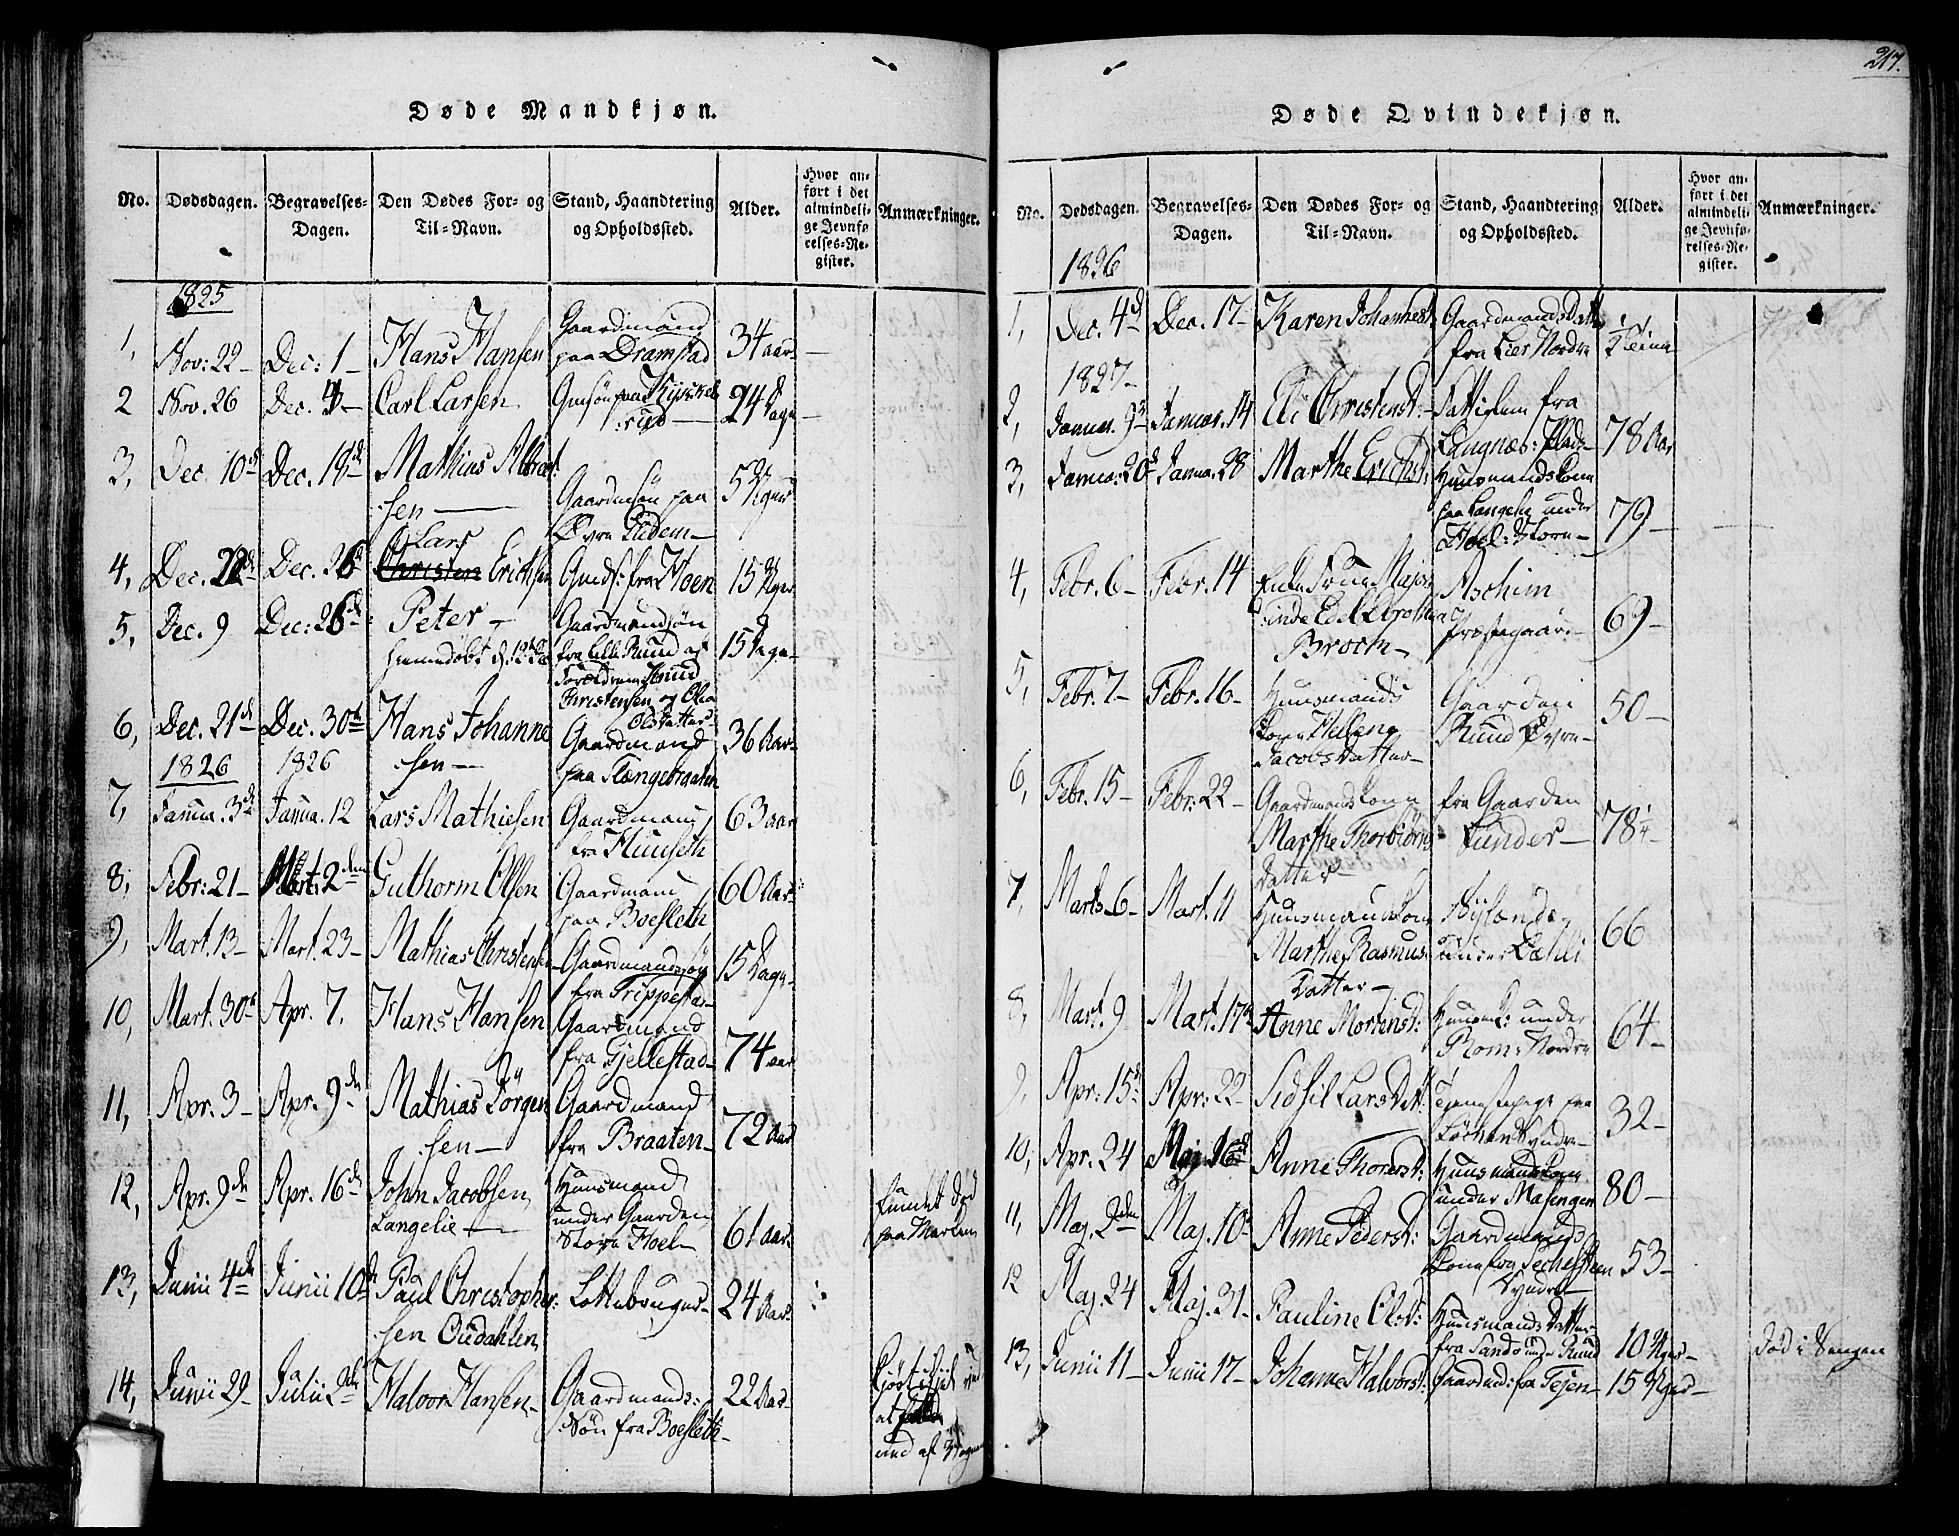 217.
Døde Mandkjøn.
No. Dødsdagen. Begravelses-Dagen. Den Dødes For- og Til-Navn. Stand, Haandtering og Opholdssted. Alder. Hvor anført i det almindelige Jevnførelses-Register. Anmærkninger.
1825
1, Nov: 22 Dec: 1 Hans Hansen Gaardmand paa Dramstad 34 aar
2 Nov. 26 Dec. 4 Carl Larsen 24 Dage
3, Dec. 10de Dec. 18de Mathias Albretsen Gaardmsön paa Övre 5 Uger
4, Dec. Dec. 26de Lars Erichsen Gmds: fra Hoen 15 Uger
5, Dec. 9 Dec: 26de Peter
hjemmedøbt
Gaardmandssön fra Lille Ruud af Forældrene Knud Christensen og Olea Olsdatter 15 Dage
6, Dec. 21de Dec. 30te Hans Johannesen Gaardmand paa Slængebraaten 36 Aar
1826 1826
7, Janua. 3de Janua. 12 Lars Mathiesen Gaardmand fra Huuseth 63 aar
8, Febr: 21 Mart: 2den Guthorm Olsen Gaardmand paa Boesleth 60 Aar
9, Mart. 13 Mart. 23 Mathias Christensen Gaardmandssøn fra Trippestad 15 Dage
10, Mart. 30te Apr. 7. Hans Hansen Gaardmand fra Gjellestad 74 aar
11, Apr. 3 Apr. 9de Mathias Jörgensen Gaardmand fra Braaten 72 Aar
12, Apr. 9de Apr. 16de John Jacobsen Langelie Huusmand under Gaarden Store Hoel 61 aar fundet død paa Marken
13, Junii 4de Junii 10de Paul Christophersen Oudahlen 24 Aar
14, Junii 29 Julii 2den Halvor Hansen Gaardmands: Sön fra Boesleth 22 Aar
ved at
ned af
Døde Qvindekjøn.
No. Dødsdagen. Begravelses-Dagen. Den Dødes For- og Til-Navn. Stand, Haandtering og Opholdssted. Alder. Hvor anført i det almindelige Jevnførelses-Register. Anmærkninger.
1826
1, Dec. 4de Dec. 17 Karen Johannesd: Gaardmandsdatter fra Lier Nordre
1827
2, Januar. 9de Januar. 14 Eli Christensd: Fattiglem fra Langnæs: Plads 78 Aar
3, Janua: 20de Janua. 28 Marthe Erichsd: Huusmandskone paa Langelie under Hoel: Store 79
4, Febr. 6 Febr. 14 Enke Frue Majorinde Edel Brock Aschim Præstegaard 69
5, Febr. 7 Febr. 16 Huusmands Kone Helene Jacobsdatter Gaarden Ruud Øvre 50
6, Febr. 15 Febr. 22 Gaardmandskone Marthe Thorbiörns Datter fra Gaarden Lunder 78 1/4
7, Marts 6 Mart. 11 Huusmandskone Marthe Rasmus Datter under Løkli 66
8, Mart. 9 Mart. 17de Anne Mortensd: Huusk: under Rom: Nordre 64
9, Apr: 15de Apr: 22 Sidsil Larsdatt: Tjenestepige fra Löchen Syndre 32
10, Apr. 24 Maj Anne Thoresd: Huusmandskone under Masengen 80
11, Maj. 2den Maj. 10de Anne Pedersd: Gaardmands Kone fra Sechelsteen Syndre 53
12 Maj. 24 Maj. 31 Pauline Olsd: Huusmands Datter fra Sand under Ruud 10 Uger
13, Junii 11 Junii 17 Johanne Halvorsd: Gaardmd: fra Tejen 15 Uger Död i Sengen